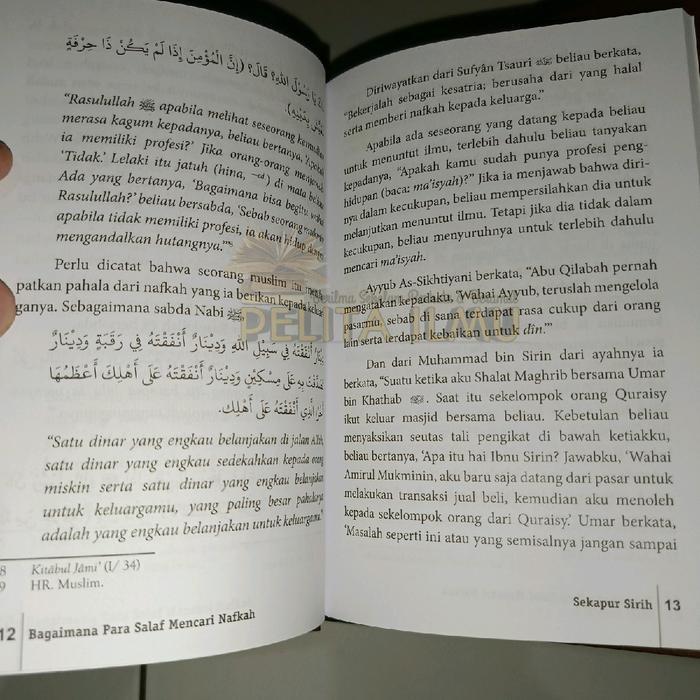 يَا رَسُوْلَ اللهِ؟ قَالَ؟ (إِنَّ الْمُؤْمِنَ إِذَا لَمْ يَكُنْ ذَا حِرْفَةٍ
بِدِيْنِهِ).
“Rasulullah ﷺ apabila melihat seseorang kemudian
merasa kagum kepadanya, beliau bertanya, ‘Apakah
ia memiliki profesi?’ Jika orang-orang menjawab
‘Tidak.’ Lelaki itu jatuh (hina, –ed) di mata beliau
Ada yang bertanya, ‘Bagaimana bisa begitu, wahai
Rasulullah?’ beliau bersabda, ‘Sebab seorang
apabila tidak memiliki profesi, ia akan hidup dengan
mengandalkan hutangnya.’”
Perlu dicatat bahwa seorang muslim itu
patkan pahala dari nafkah yang ia berikan kepada kelu
ganya. Sebagaimana sabda Nabi ﷺ,
دِيْنَارٌ أَنْفَقْتَهُ فِي سَبِيْلِ اللهِ وَدِيْنَارٌ أَنْفَقْتَهُ فِي رَقَبَةٍ وَدِيْنَارٌ
تَصَدَّقْتَ بِهِ عَلَى مِسْكِيْنٍ وَدِيْنَارٌ أَنْفَقْتَهُ عَلَى أَهْلِكَ أَعْظَمُهَا
أَجْرًا الَّذِي أَنْفَقْتَهُ عَلَى أَهْلِكَ.
“Satu dinar yang engkau belanjakan di jalan Allah,
satu dinar yang engkau sedekahkan kepada orang
miskin serta satu dinar yang engkau belanjakan
untuk keluargamu, yang paling besar pahalanya
adalah yang engkau belanjakan untuk keluargamu.”
8 Kitâbul Jâmi’ (I/ 34)
9 HR. Muslim.
12 Bagaimana Para Salaf Mencari Nafkah
Diriwayatkan dari Sufyân Tsauri beliau berkata,
“Bekerjalah sebagai kesatria; berusaha dari yang halal
serta memberi nafkah kepada keluarga.”
Apabila ada seseorang yang datang kepada beliau
untuk menuntut ilmu, terlebih dahulu beliau tanyakan
kepadanya, “Apakah kamu sudah punya profesi peng-
hidupan (baca: ma’isyah)?” Jika ia menjawab bahwa diri-
nya dalam kecukupan, beliau mempersilahkan dia untuk
melanjutkan menuntut ilmu. Tetapi jika dia tidak dalam
kecukupan, beliau menyuruhnya untuk terlebih dahulu
mencari ma’isyah.
Ayyub As-Sikhtiyani berkata, “Abu Qilabah pernah
mengatakan kepadaku, ‘Wahai Ayyub, teruslah mengelola
pasarmu, sebab di sana terdapat rasa cukup dari orang
lain serta terdapat kebaikan untuk dîn.’”
Dan dari Muhammad bin Sirin dari ayahnya ia
berkata, “Suatu ketika aku Shalat Maghrib bersama Umar
bin Khathab. Saat itu sekelompok orang Quraisy
ikut keluar masjid bersama beliau. Kebetulan beliau
menyaksikan seutas tali pengikat di bawah ketiakku,
beliau bertanya, ‘Apa itu hai Ibnu Sirin?’ Jawabku, ‘Wahai
Amirul Mukminin, aku baru saja datang dari pasar untuk
melakukan transaksi jual beli, kemudian aku menoleh
kepada sekelompok orang dari Quraisy.’ Umar berkata,
‘Masalah seperti ini atau yang semisalnya jangan sampai
Sekapur Sirih 13
PELITA ILMU